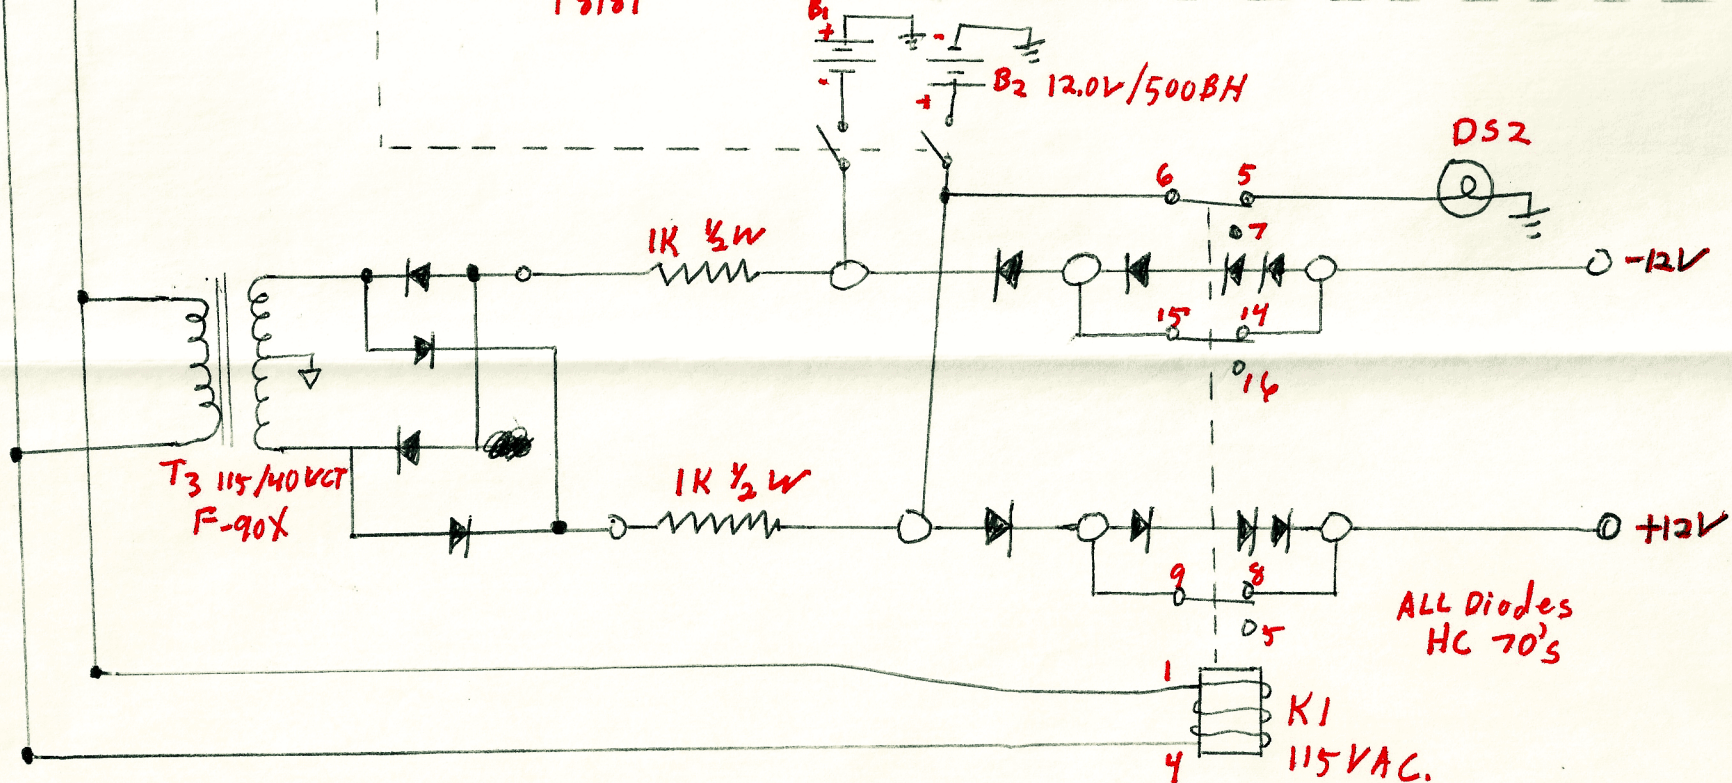 B1
+
-
-
+
B2 12.0V/500BH
DS2
6 5
7
1K ½W
-12V
15 14
16
T3 115/40VCT
F-90X
1K ½ W
+12V
9 8
5
ALL Diodes
HC 70's
1
4
K1
115VAC.